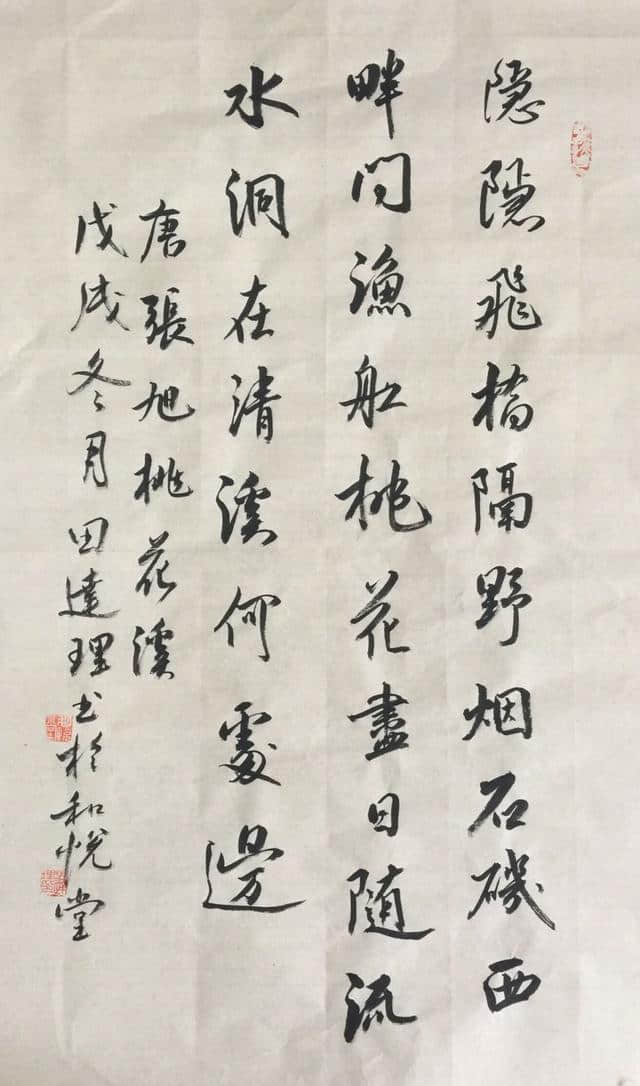 隐隱飛橋隔野烟石磯西
畔问漁船桃花盡日随流
水洞在清溪何處邊
唐張旭桃花溪
戊戌冬月田達理书於和悦堂